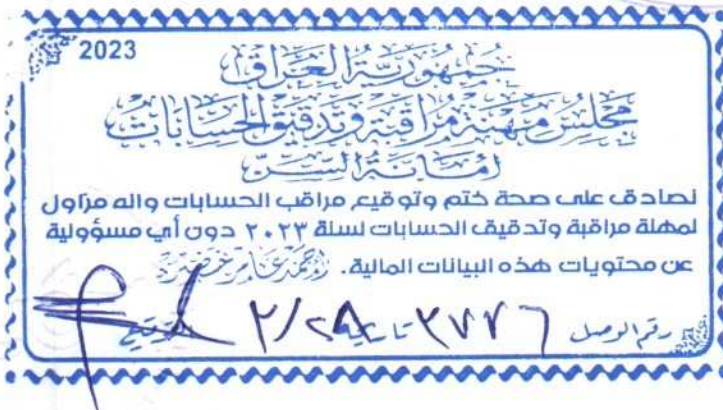 2023
جمهورية العراق
مجلس مهنة مراقبة وتدقيق الحسابات
امانة السر
نصادق على صحة ختم وتوقيع مراقب الحسابات وانه مزاول
لمهنة مراقبة وتدقيق الحسابات لسنة ٢٠٢٣ دون أي مسؤولية
عن محتويات هذه البيانات المالية.
رقم الوصل ٣٧٧٦ تاريخه ٢/٢٨